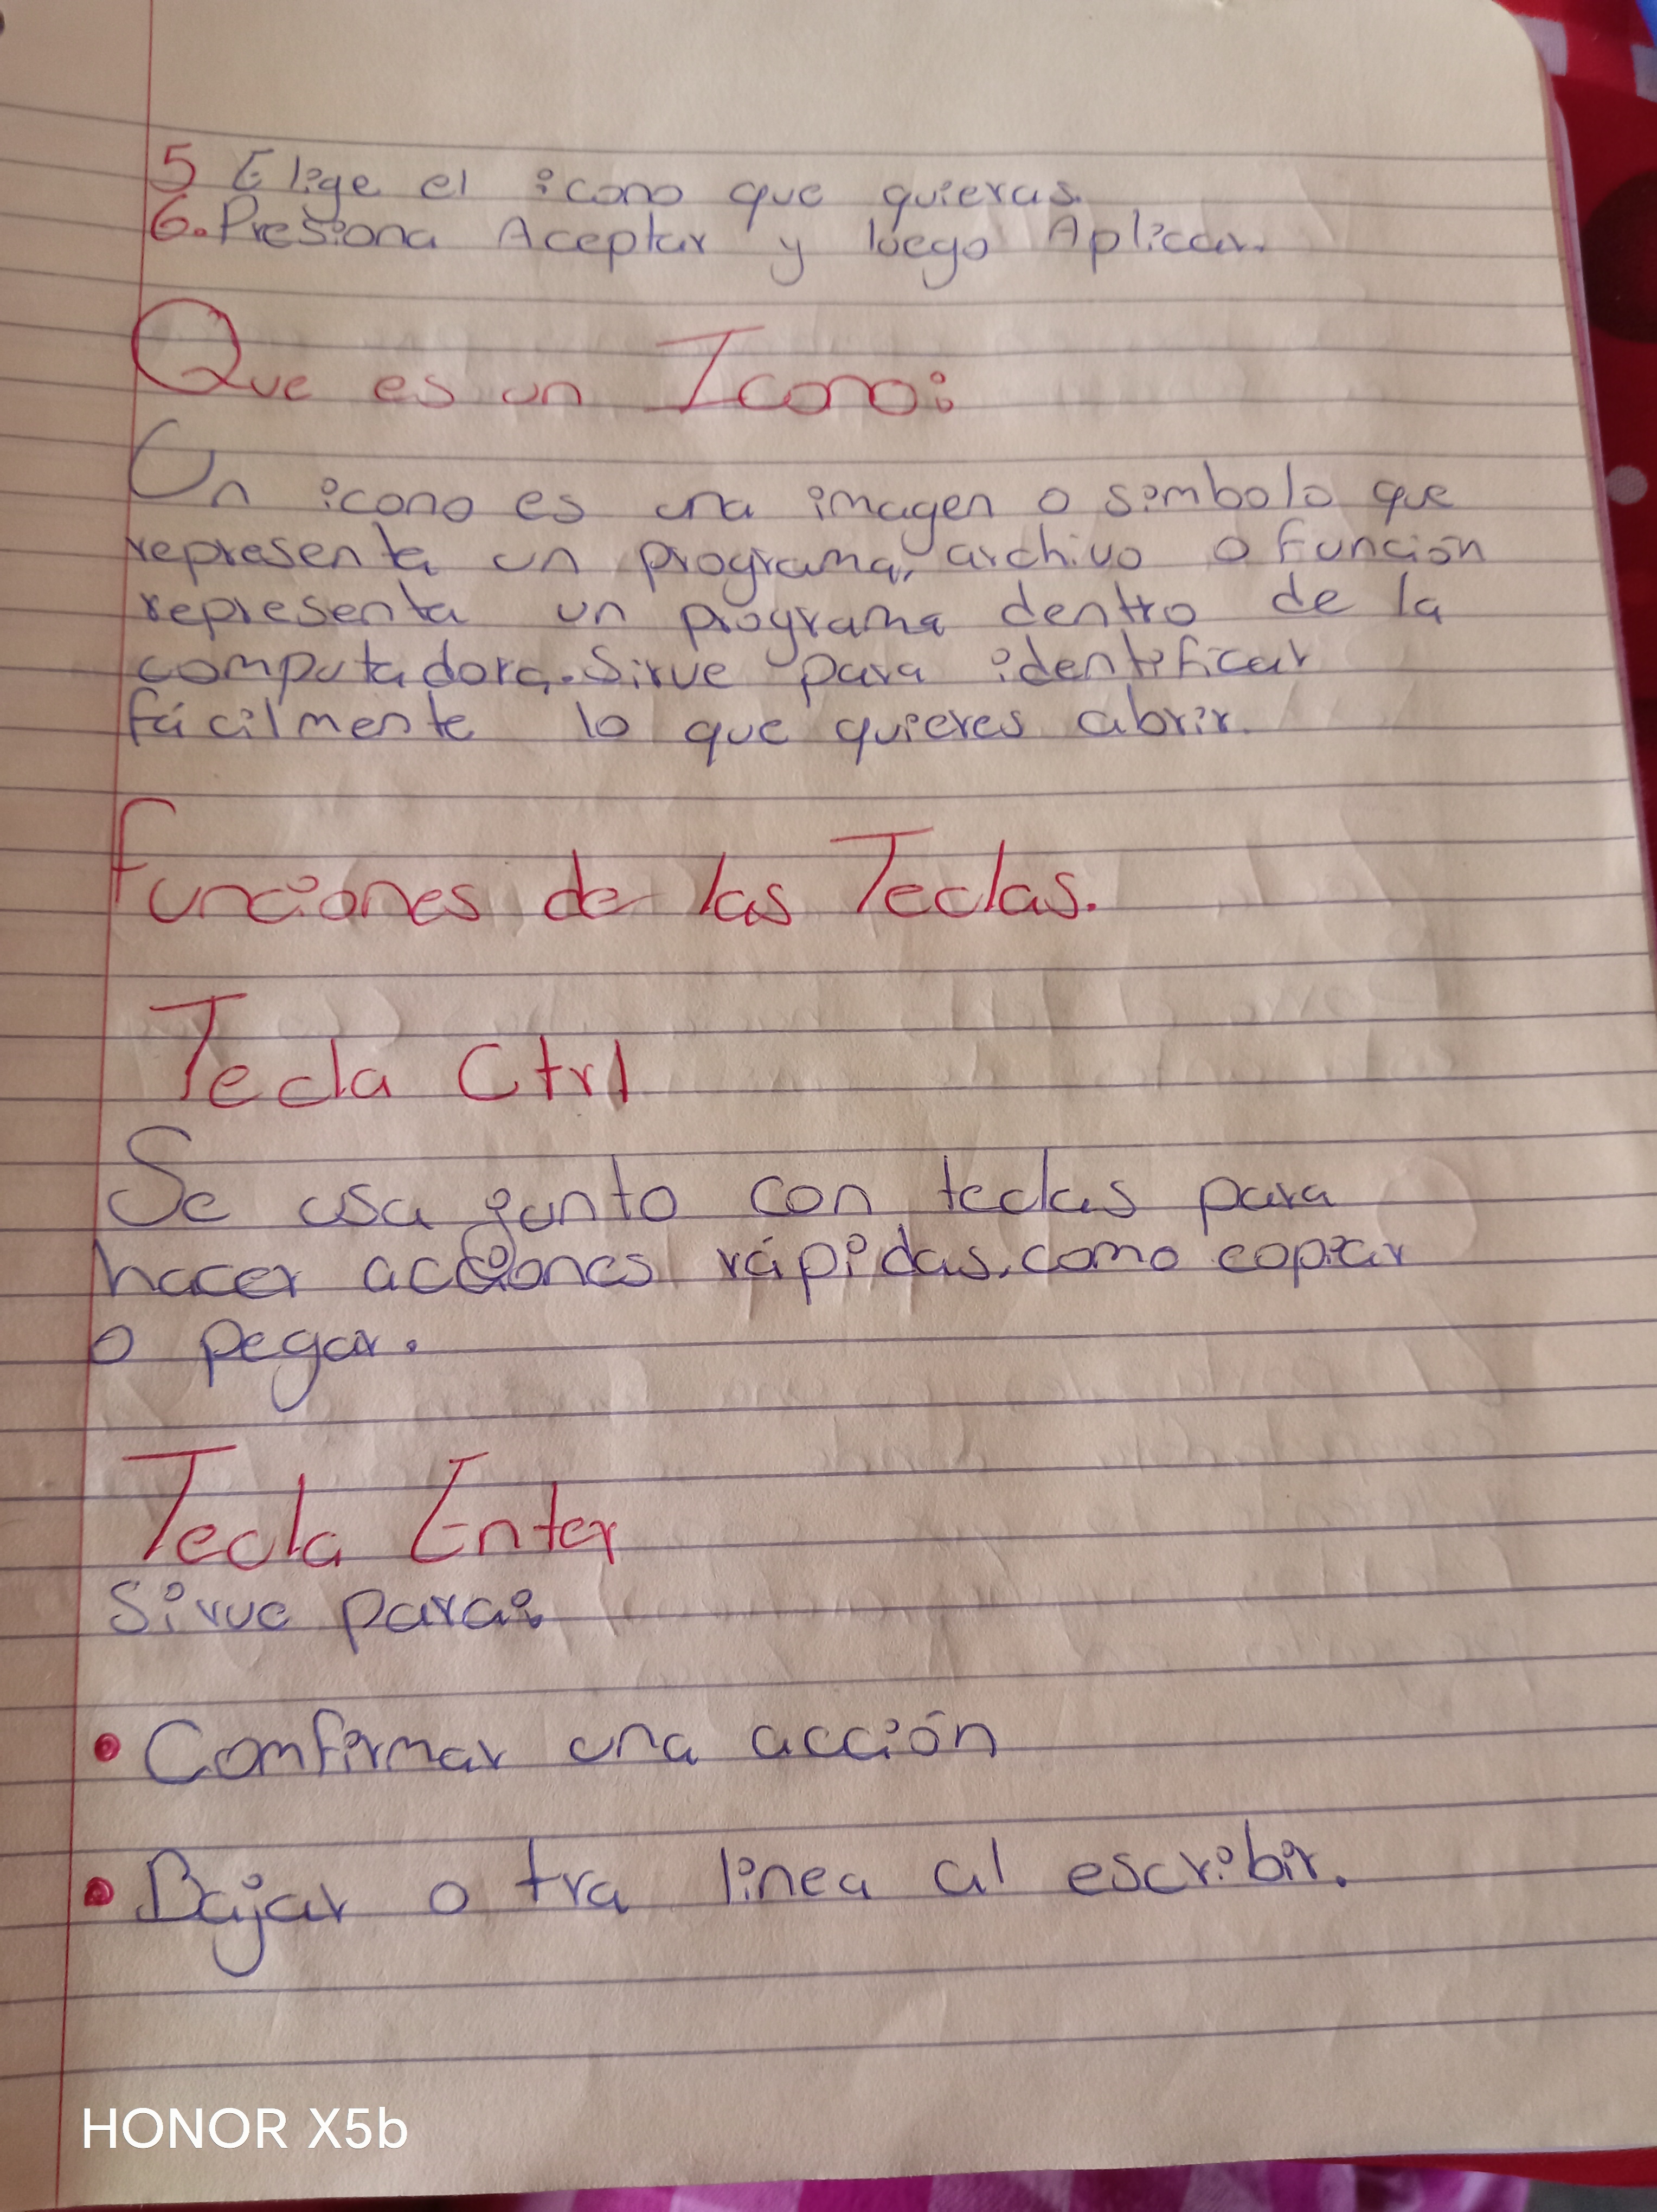 5 Elige el icono que quieras.
6. Presiona Aceptar y luego Aplicar.
Que es un Icono:
Un icono es una imagen o simbolo que
representa un programa, archivo o función
representa un programa dentro de la
computadora. Sirve para identificar
fácilmente lo que quieres abrir.
Funciones de las Teclas.
Tecla Ctrl
Se usa junto con teclas para
hacer acciones rápidas, como copiar
o pegar.
Tecla Enter
Sirve para:
• Comfirmar una acción
• Bajar o tra linea al escribir.
HONOR X5b